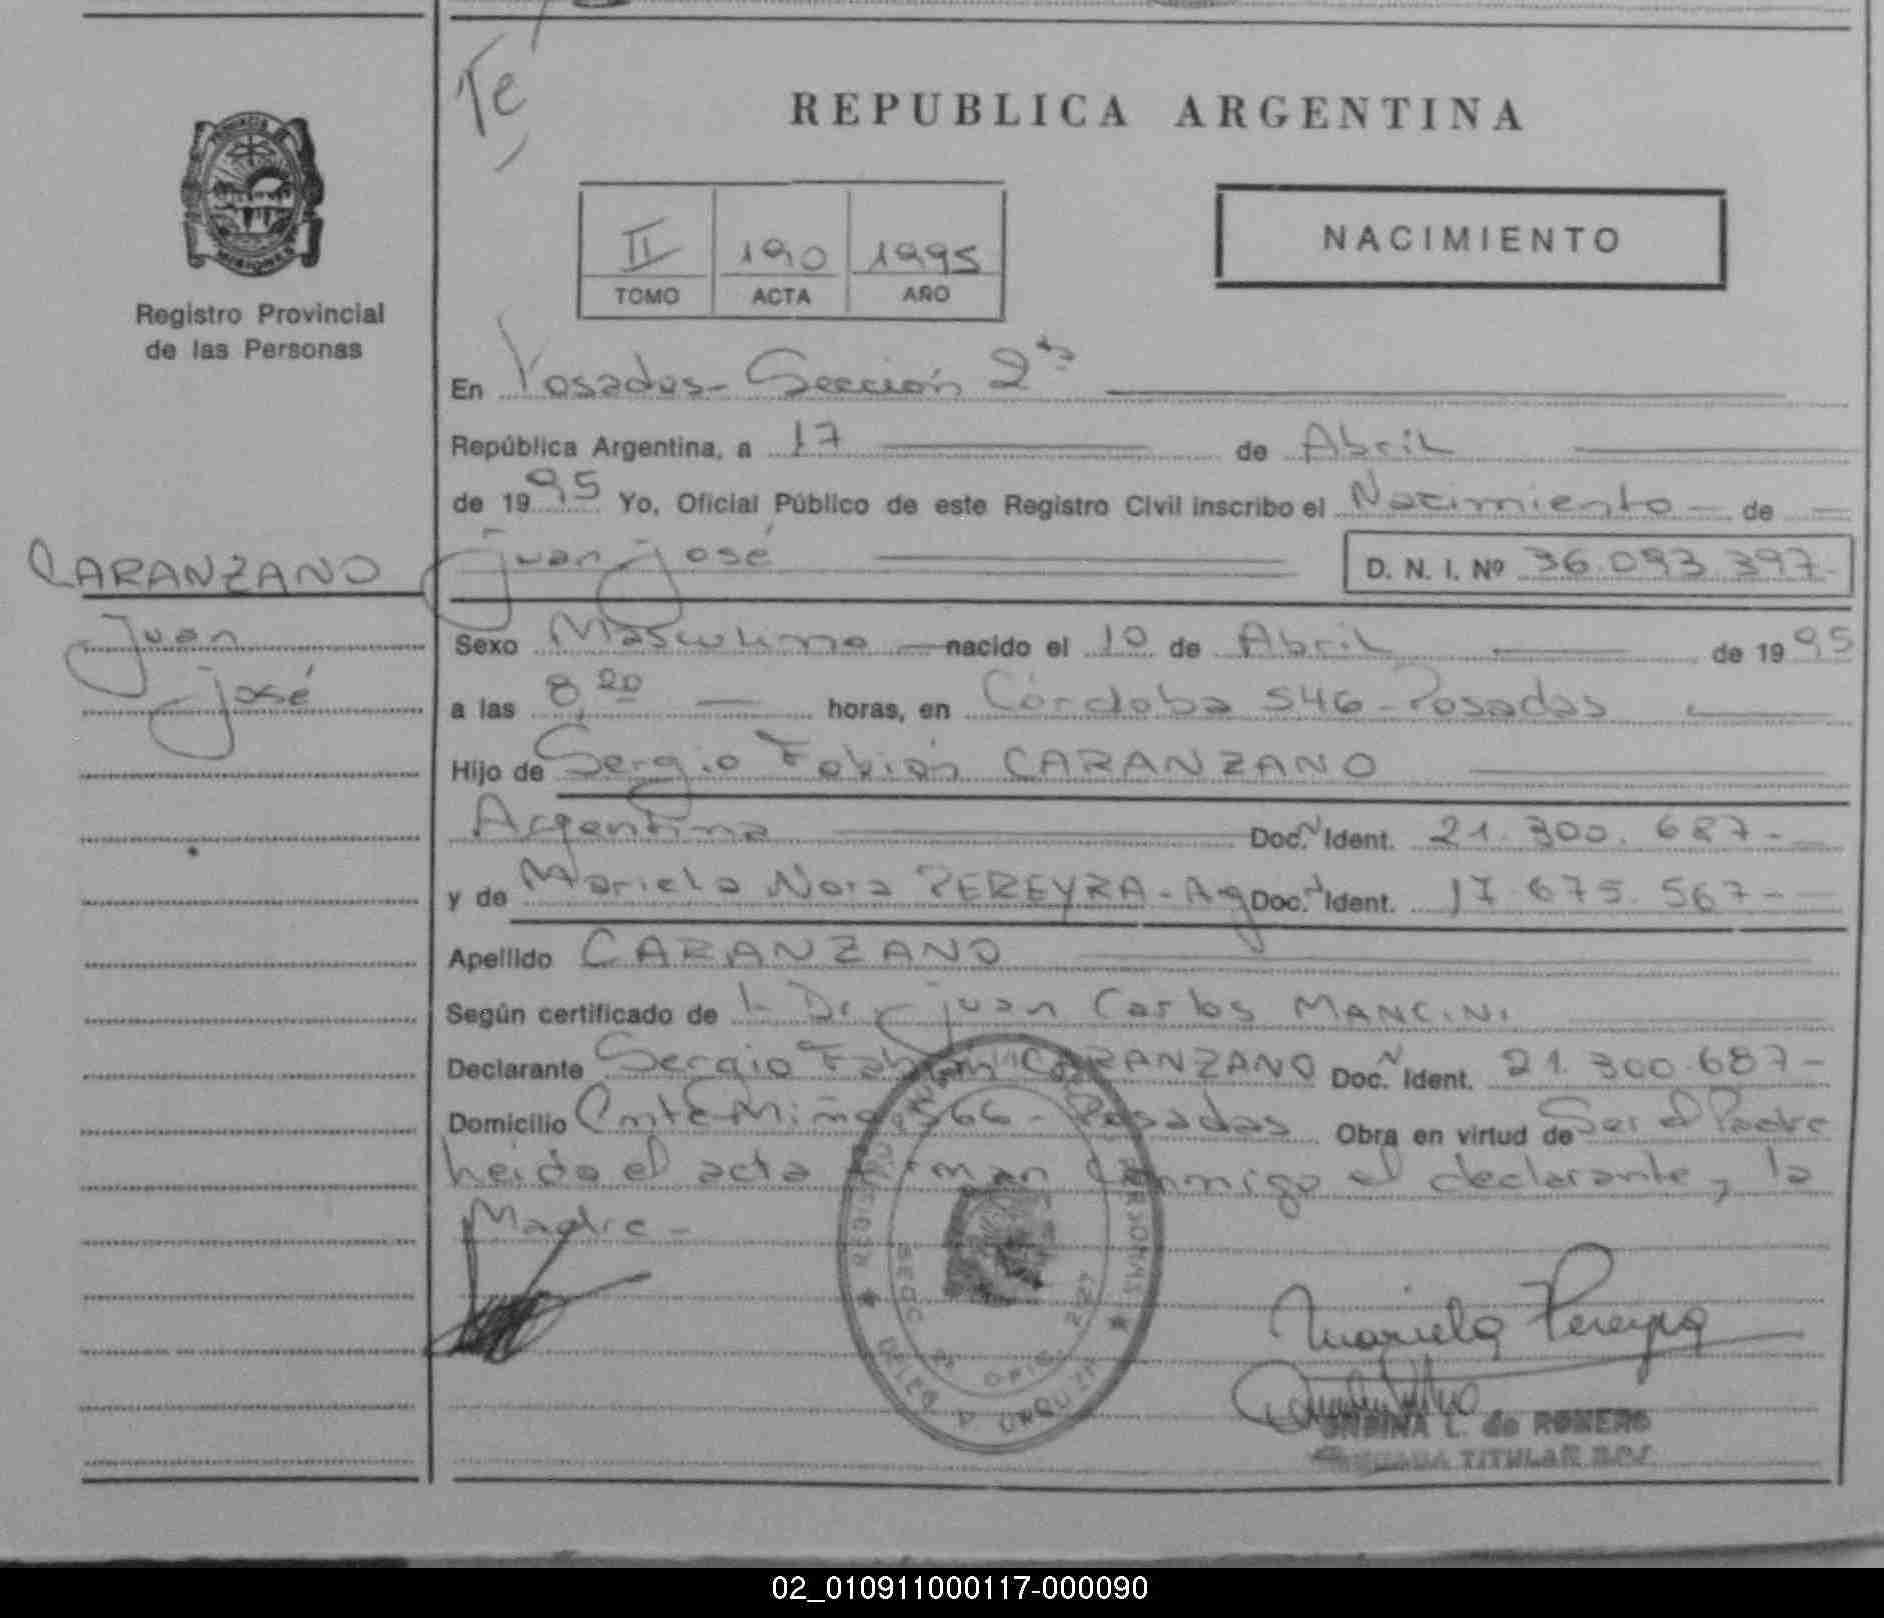 Te
REPUBLICA ARGENTINA
PROVINCIA DE
MISIONES
Registro Provincial
de las Personas
II 190 1995
TOMO ACTA AÑO
NACIMIENTO
En Posadas - Sección 2ª
República Argentina, a 17 de Abril
de 1995 Yo, Oficial Público de este Registro Civil inscribo el Nacimiento - de -
CARANZANO
Juan José
D. N. I. Nº 36.093.397-
Juan
José
Sexo Masculino - nacido el 10 de Abril de 1995
a las 8,20 - horas, en Córdoba 546 - Posadas
Hijo de Sergio Fabián CARANZANO
Argentina Doc. N Ident. 21.300.687-
y de Mariela Nora PEREYRA - Ag Doc. N Ident. 17.675.567-
Apellido CARANZANO
Según certificado de l- Dr. Juan Carlos MANCINI
Declarante Sergio Fabián CARANZANO Doc. N Ident. 21.300.687-
Domicilio Cnte Miño 366 - Posadas Obra en virtud de Ser el Padre
Leida el acta firman conmigo el declarante, la
Madre -
Mariela Pereyra
ONDINA L. de ROMERO
TITULAR
02_010911000117-000090